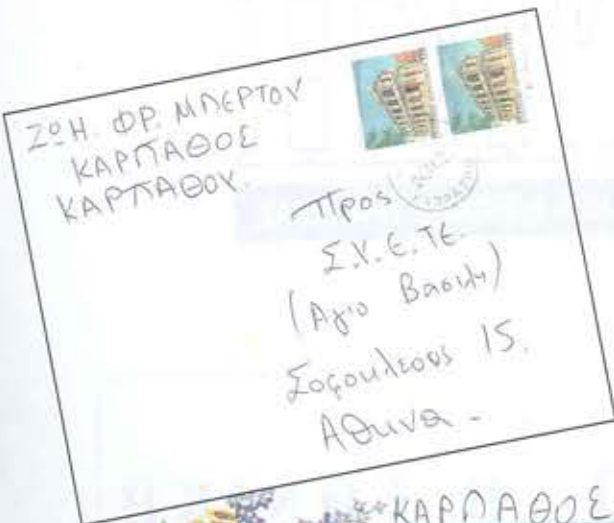 ΖΩΗ. ΦΡ. ΜΠΕΡΤΟΥ
ΚΑΡΠΑΘΟΣ
ΚΑΡΠΑΘΟΥ.
Προς
Σ.Υ.Ε.ΤΕ.
(Αγιο Βασιλη)
Σοφουλεους 15.
Αθηνα -
ΚΑΡΠΑΘΟΣ